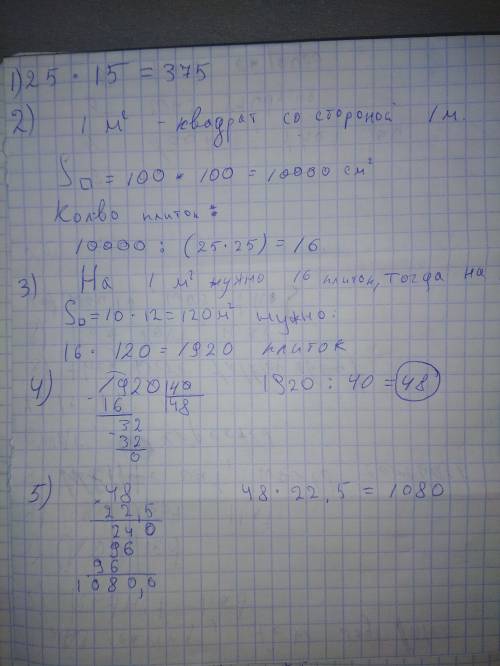 1) 25 · 15 = 375
2) 1 м² - квадрат со стороной 1 м.
S□ = 100 · 100 = 10000 см²
Колво плиток:
10000 : (25·25) = 16
3) На 1 м² нужно 16 плиток, тогда на
S□ = 10 · 12 = 120 м² нужно:
16 · 120 = 1920 плиток
4) 1920 |40 1920 : 40 = 48
- 16 48
32
- 32
0
5) · 48 48 · 22,5 = 1080
22,5
240
96
96
1080,0